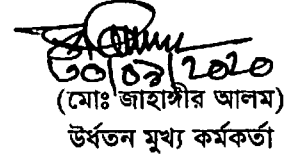 ৩০/০৯/২০২০
(মোঃ জাহাঙ্গীর আলম)
উর্ধতন মুখ্য কর্মকর্তা